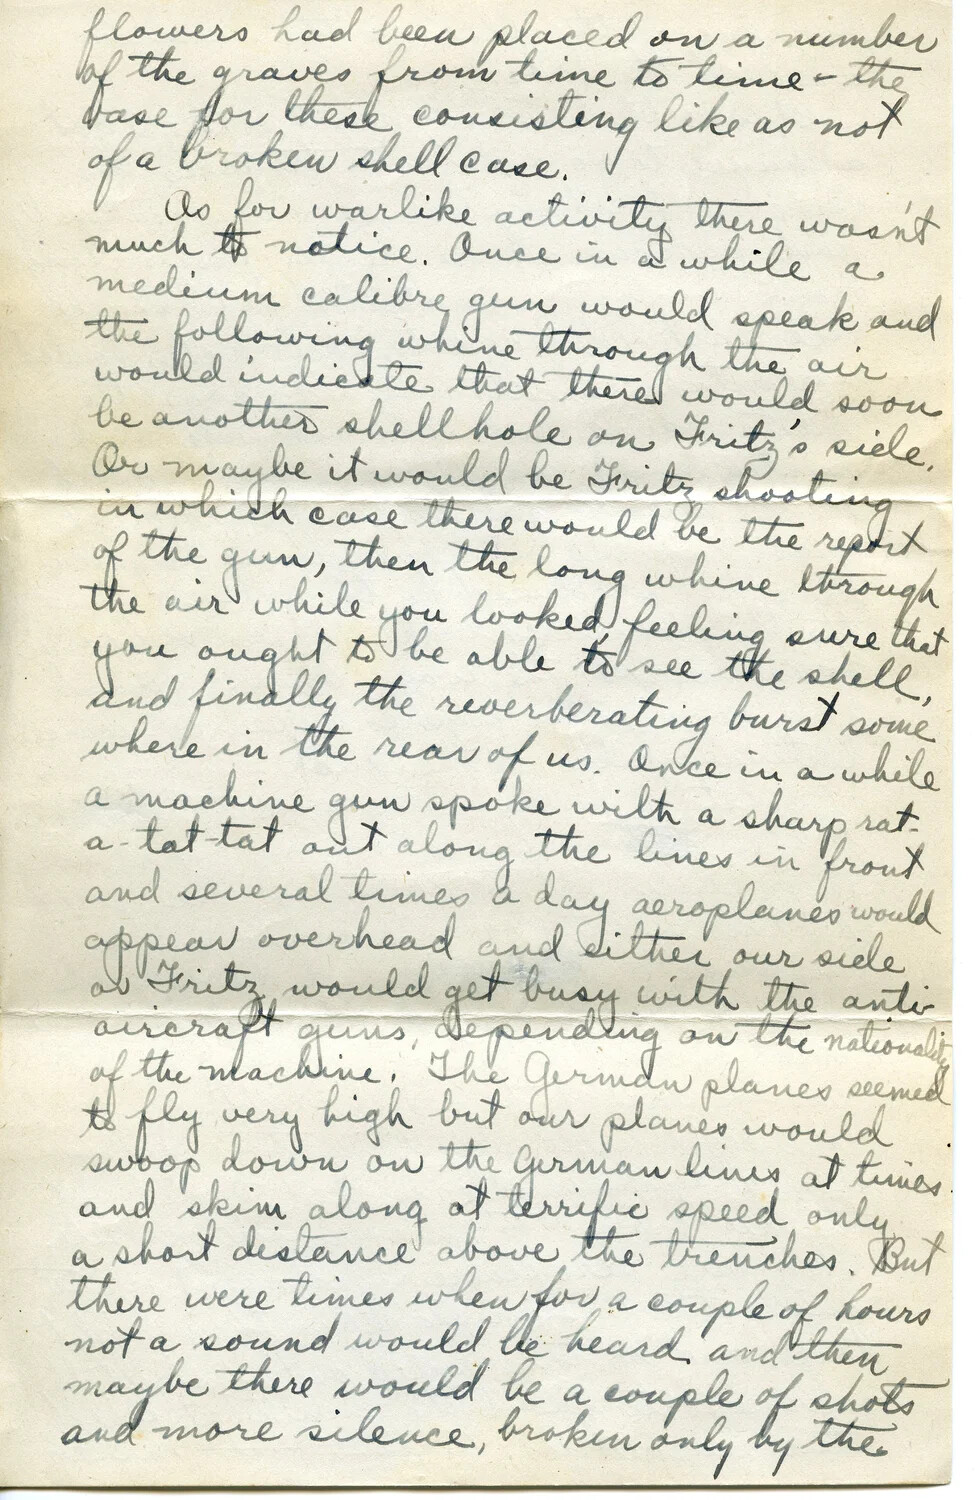 flowers had been placed on a number
of the graves from time to time - the
vase for these consisting like as not
of a broken shell case.
As for warlike activity there wasn't
much to notice. Once in a while a
medium calibre gun would speak and
the following whine through the air
would indicate that there would soon
be another shellhole on Fritz's side.
Or maybe it would be Fritz shooting
in which case there would be the report
of the gun, then the long whine through
the air while you looked, feeling sure that
you ought to be able to see the shell,
and finally the reverberating burst some
where in the rear of us. Once in a while
a machine gun spoke with a sharp rat-
a-tat-tat out along the lines in front
and several times a day aeroplanes would
appear overhead and either our side
or Fritz would get busy with the anti-
aircraft guns, depending on the nationality
of the machine. The German planes seemed
to fly very high but our planes would
swoop down on the German lines at times
and skim along at terrific speed only
a short distance above the trenches. But
there were times when for a couple of hours
not a sound would be heard and then
maybe there would be a couple of shots
and more silence, broken only by the